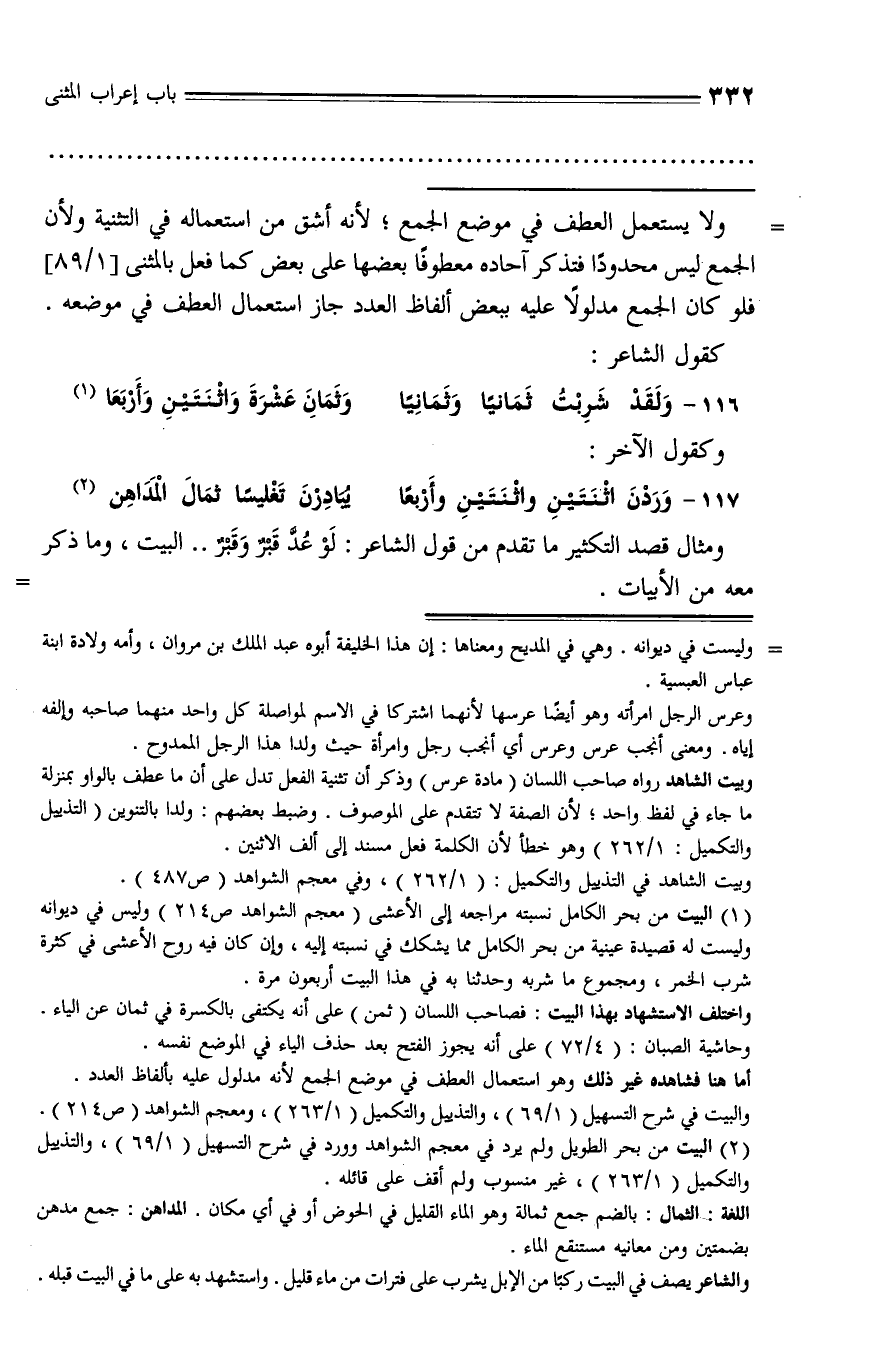 ٣٣٢ باب إعراب المثنى
= ولا يستعمل العطف في موضع الجمع ؛ لأنه أشق من استعماله في التثنية ولأن
الجمع ليس محدودًا فتذكر آحاده معطوفًا بعضها على بعض كما فعل بالمثنى [٨٩/١]
فلو كان الجمع مدلولًا عليه ببعض ألفاظ العدد جاز استعمال العطف في موضعه .
كقول الشاعر :
١١٦ - وَلَقَدْ شَرِبْتُ ثَمَانيًا وَثَمَانِيًا وَثَمَانَ عَشْرَةَ وَاثْنَتَيْنِ وَأَرْبَعَا (١)
وكقول الآخر :
١١٧ - وَرَدْنَ اثْنَتَيْنِ واثْنَتَيْنِ وأَرْبعًا يُبَادِرْنَ تَغْليسًا ثمَالَ الْمَدَاهِن (٢)
ومثال قصد التكثير ما تقدم من قول الشاعر : لَوْ عُدَّ قَبْرٌ وَقَبْرٌ .. البيت ، وما ذكر
معه من الأبيات . =
= وليست في ديوانه . وهي في المديح ومعناها : إن هذا الخليفة أبوه عبد الملك بن مروان ، وأمه ولادة ابنة
عباس العبسية .
وعرس الرجل امرأته وهو أيضًا عرسها لأنهما اشتركا في الاسم لمواصلة كل واحد منهما صاحبه وإلفه
إياه . ومعنى أنجب عرس وعرس أي أنجب رجل وامرأة حيث ولدا هذا الرجل الممدوح .
وبيت الشاهد رواه صاحب اللسان ( مادة عرس ) وذكر أن تثنية الفعل تدل على أن ما عطف بالواو بمنزلة
ما جاء في لفظ واحد ؛ لأن الصفة لا تتقدم على الموصوف . وضبط بعضهم : ولدا بالتنوين ( التذييل
والتكميل : ٢٦٢/١ ) وهو خطأ لأن الكلمة فعل مسند إلى ألف الاثنين .
وبيت الشاهد في التذييل والتكميل : ( ٢٦٢/١ ) ، وفي معجم الشواهد ( ص٤٨٧ ) .
(١) البيت من بحر الكامل نسبته مراجعه إلى الأعشى ( معجم الشواهد ص٢١٤ ) وليس في ديوانه
وليست له قصيدة عينية من بحر الكامل مما يشكك في نسبته إليه ، وإن كان فيه روح الأعشى في كثرة
شرب الخمر ، ومجموع ما شربه وحدثنا به في هذا البيت أربعون مرة .
واختلف الاستشهاد بهذا البيت : فصاحب اللسان ( ثمن ) على أنه يكتفى بالكسرة في ثمان عن الياء .
وحاشية الصبان : ( ٧٢/٤ ) على أنه يجوز الفتح بعد حذف الياء في الموضع نفسه .
أما هنا فشاهده غير ذلك وهو استعمال العطف في موضع الجمع لأنه مدلول عليه بألفاظ العدد .
والبيت في شرح التسهيل ( ٦٩/١ ) ، والتذييل والتكميل ( ٢٦٣/١ ) ، ومعجم الشواهد ( ص٢١٤ ) .
(٢) البيت من بحر الطويل ولم يرد في معجم الشواهد وورد في شرح التسهيل ( ٦٩/١ ) ، والتذييل
والتكميل ( ٢٦٣/١ ) ، غير منسوب ولم أقف على قائله .
اللغة : الثمال : بالضم جمع ثمالة وهو الماء القليل في الحوض أو في أي مكان . المداهن : جمع مدهن
بضمتين ومن معانيه مستنقع الماء .
والشاعر يصف في البيت ركبًا من الإبل يشرب على فترات من ماء قليل . واستشهد به على ما في البيت قبله .